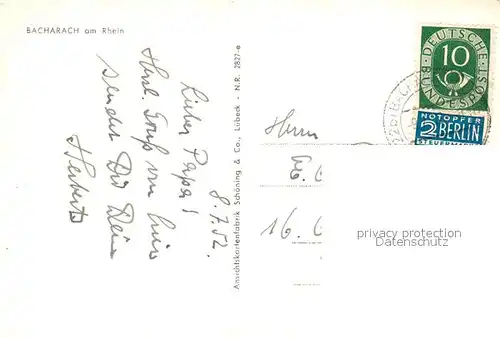 BACHARACH am Rhein
8.7.52.
Lieber Papa!
Herzl. Gruß von hier
sendet Dir Dein
Herbert
Ansichtskartenfabrik Schöning & Co., Lübeck - N.R.
DEUTSCHE
10
BUNDESPOST
NOTOPFER
2 BERLIN
STEUERMARKE
Herrn
16.
privacy protection
Datenschutz